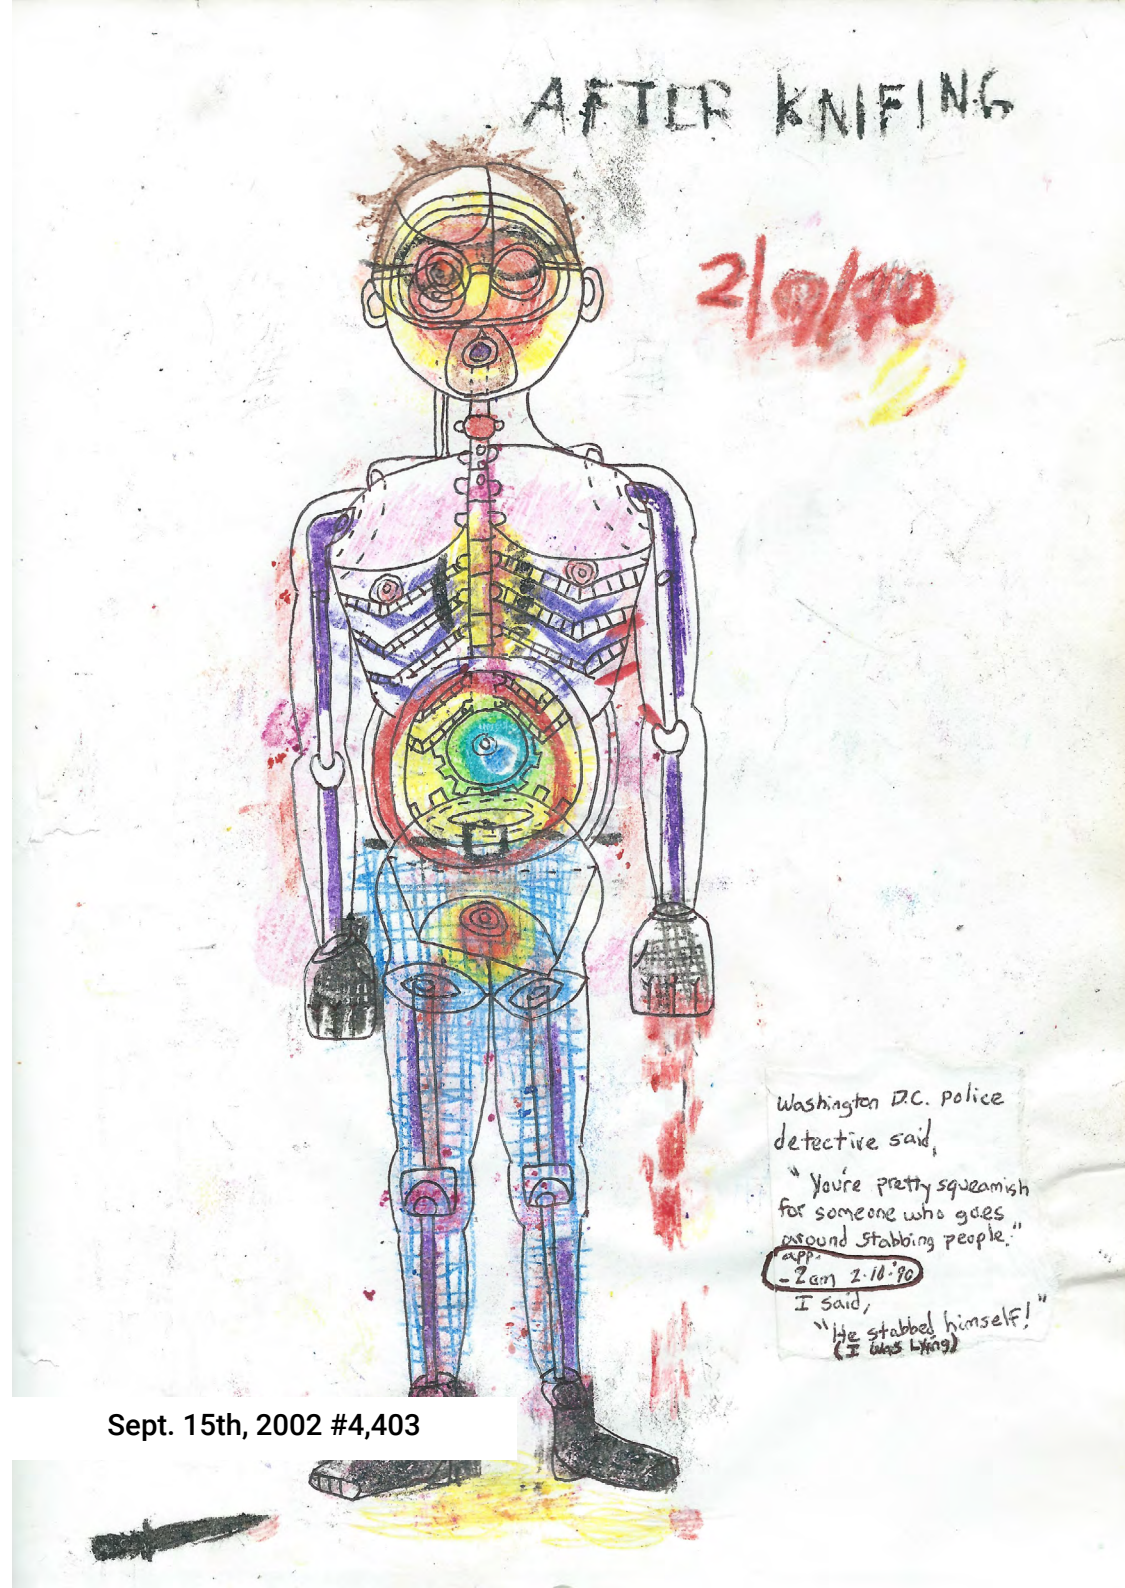 AFTER KNIFING
2/9/90
Washington D.C. Police
detective said,
"You're pretty squeamish
for someone who goes
around stabbing people."
app.
- 2am 2.10.'90
I said,
"He stabbed himself!"
(I was Lying)
Sept. 15th, 2002 #4,403